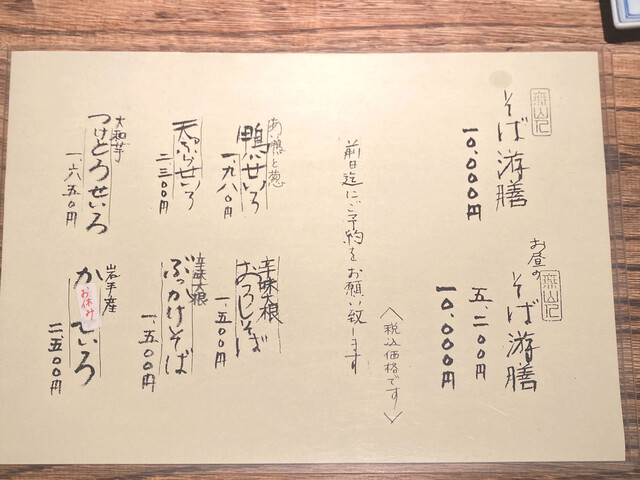 そば游膳
一〇、〇〇〇円
お昼の
そば游膳
五、二〇〇円
一〇、〇〇〇円
〈税込価格です〉
前日迄にご予約をお願い致します
あい鴨と葱
鴨汁せいろ
一、九八〇円
辛味大根
おろしそば
一、五〇〇円
天ぷらせいろ
二、三〇〇円
辛味大根
ぶっかけそば
一、五〇〇円
大和芋
つけとろせいろ
一、六五〇円
岩手産
か
お休み
せいろ
二、五〇〇円